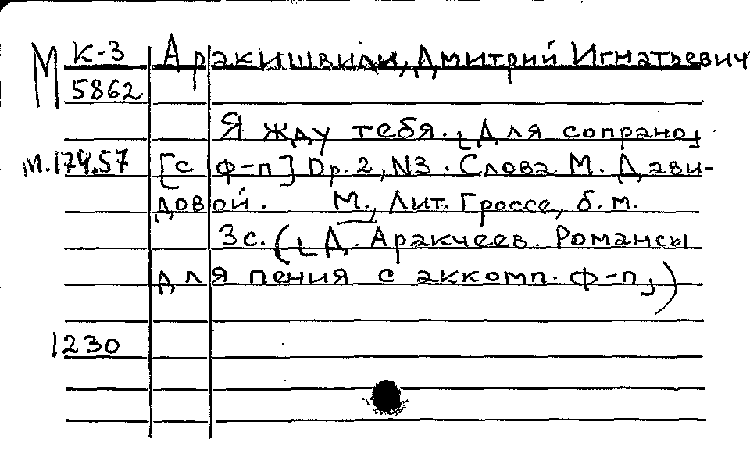 М К-3 Аракишвили, Дмитрий Игнатьевич
5862
Я жду тебя. [Для сопрано]
М.174.57 [с ф-п] Op. 2, N3. Слова М. Дави-
довой. М., Лит. Гроссе, б. м.
3с. ([Д. Аракчеев. Романсы
для пения с аккомп. ф-п.])
1230